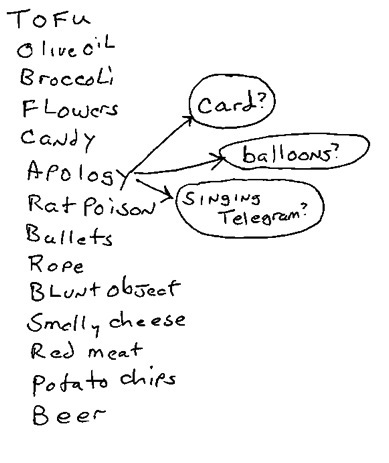 Tofu
Olive oil
Broccoli
Flowers
Candy
Apology
Card?
balloons?
Singing
Telegram?
Rat Poison
Bullets
Rope
Blunt object
Smelly cheese
Red meat
Potato chips
Beer